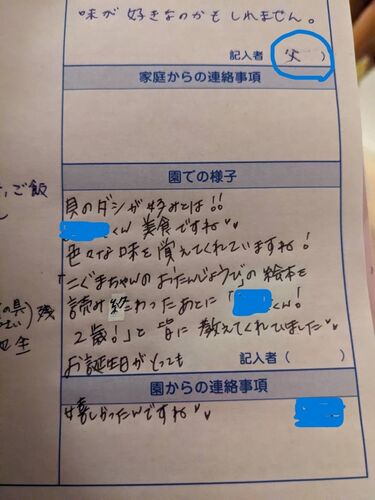 味が好きなのかもしれません。
記入者 父 )
家庭からの連絡事項
園での様子
貝のダシが好みとは!!
くん 美食ですね
色々な味を覚えてくれていますね!
「こぐまちゃんのおたんじょうび」の絵本を
読み終わったあとに「 くん!
2歳!」と皆に教えてくれました
お誕生日がとっても
記入者 ( )
園からの連絡事項
嬉しかったんですね
、ご飯
の具)
残